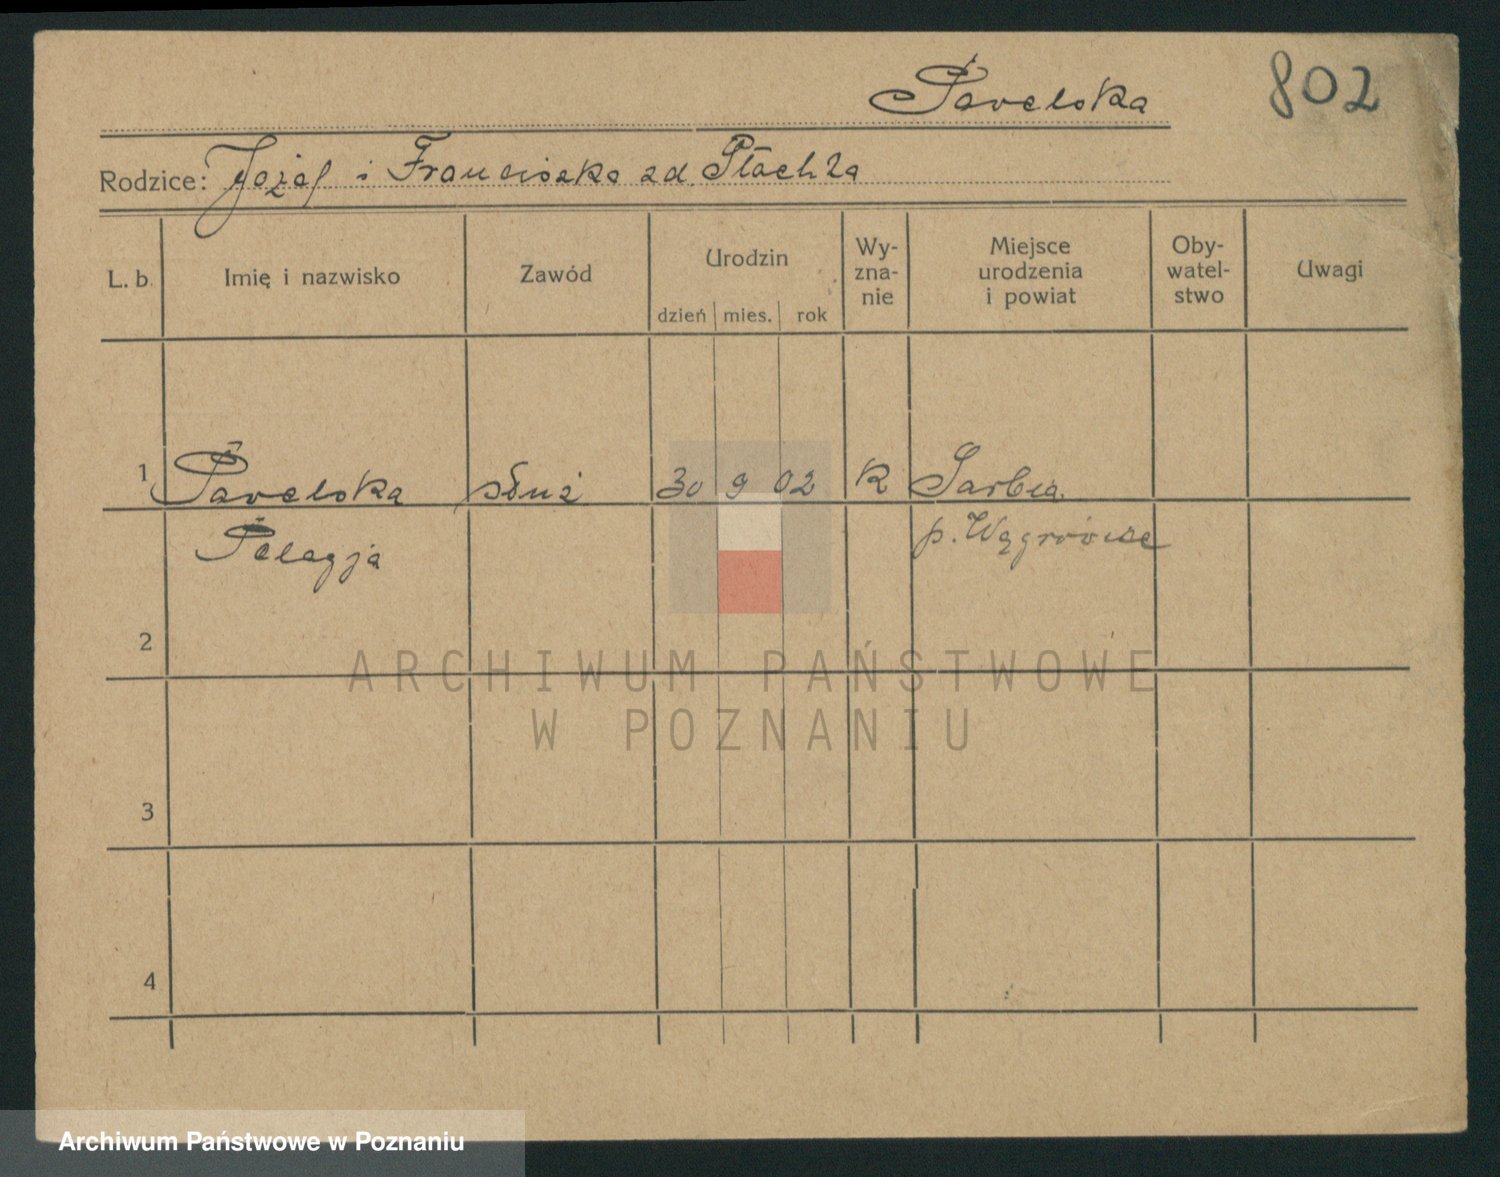 Pavelska 802
Rodzice: Józef i Franciszka zd. Płachta
L. b. Imię i nazwisko Zawód Urodzin dzień mies. rok Wy-zna-nie Miejsce urodzenia i powiat Oby-watel-stwo Uwagi
1 Pavelska służ 30 9 02 K Sarbia
Pelagja p. Wągrówiec
2
ARCHIWUM PAŃSTWOWE
W POZNANIU
3
4
Archiwum Państwowe w Poznaniu